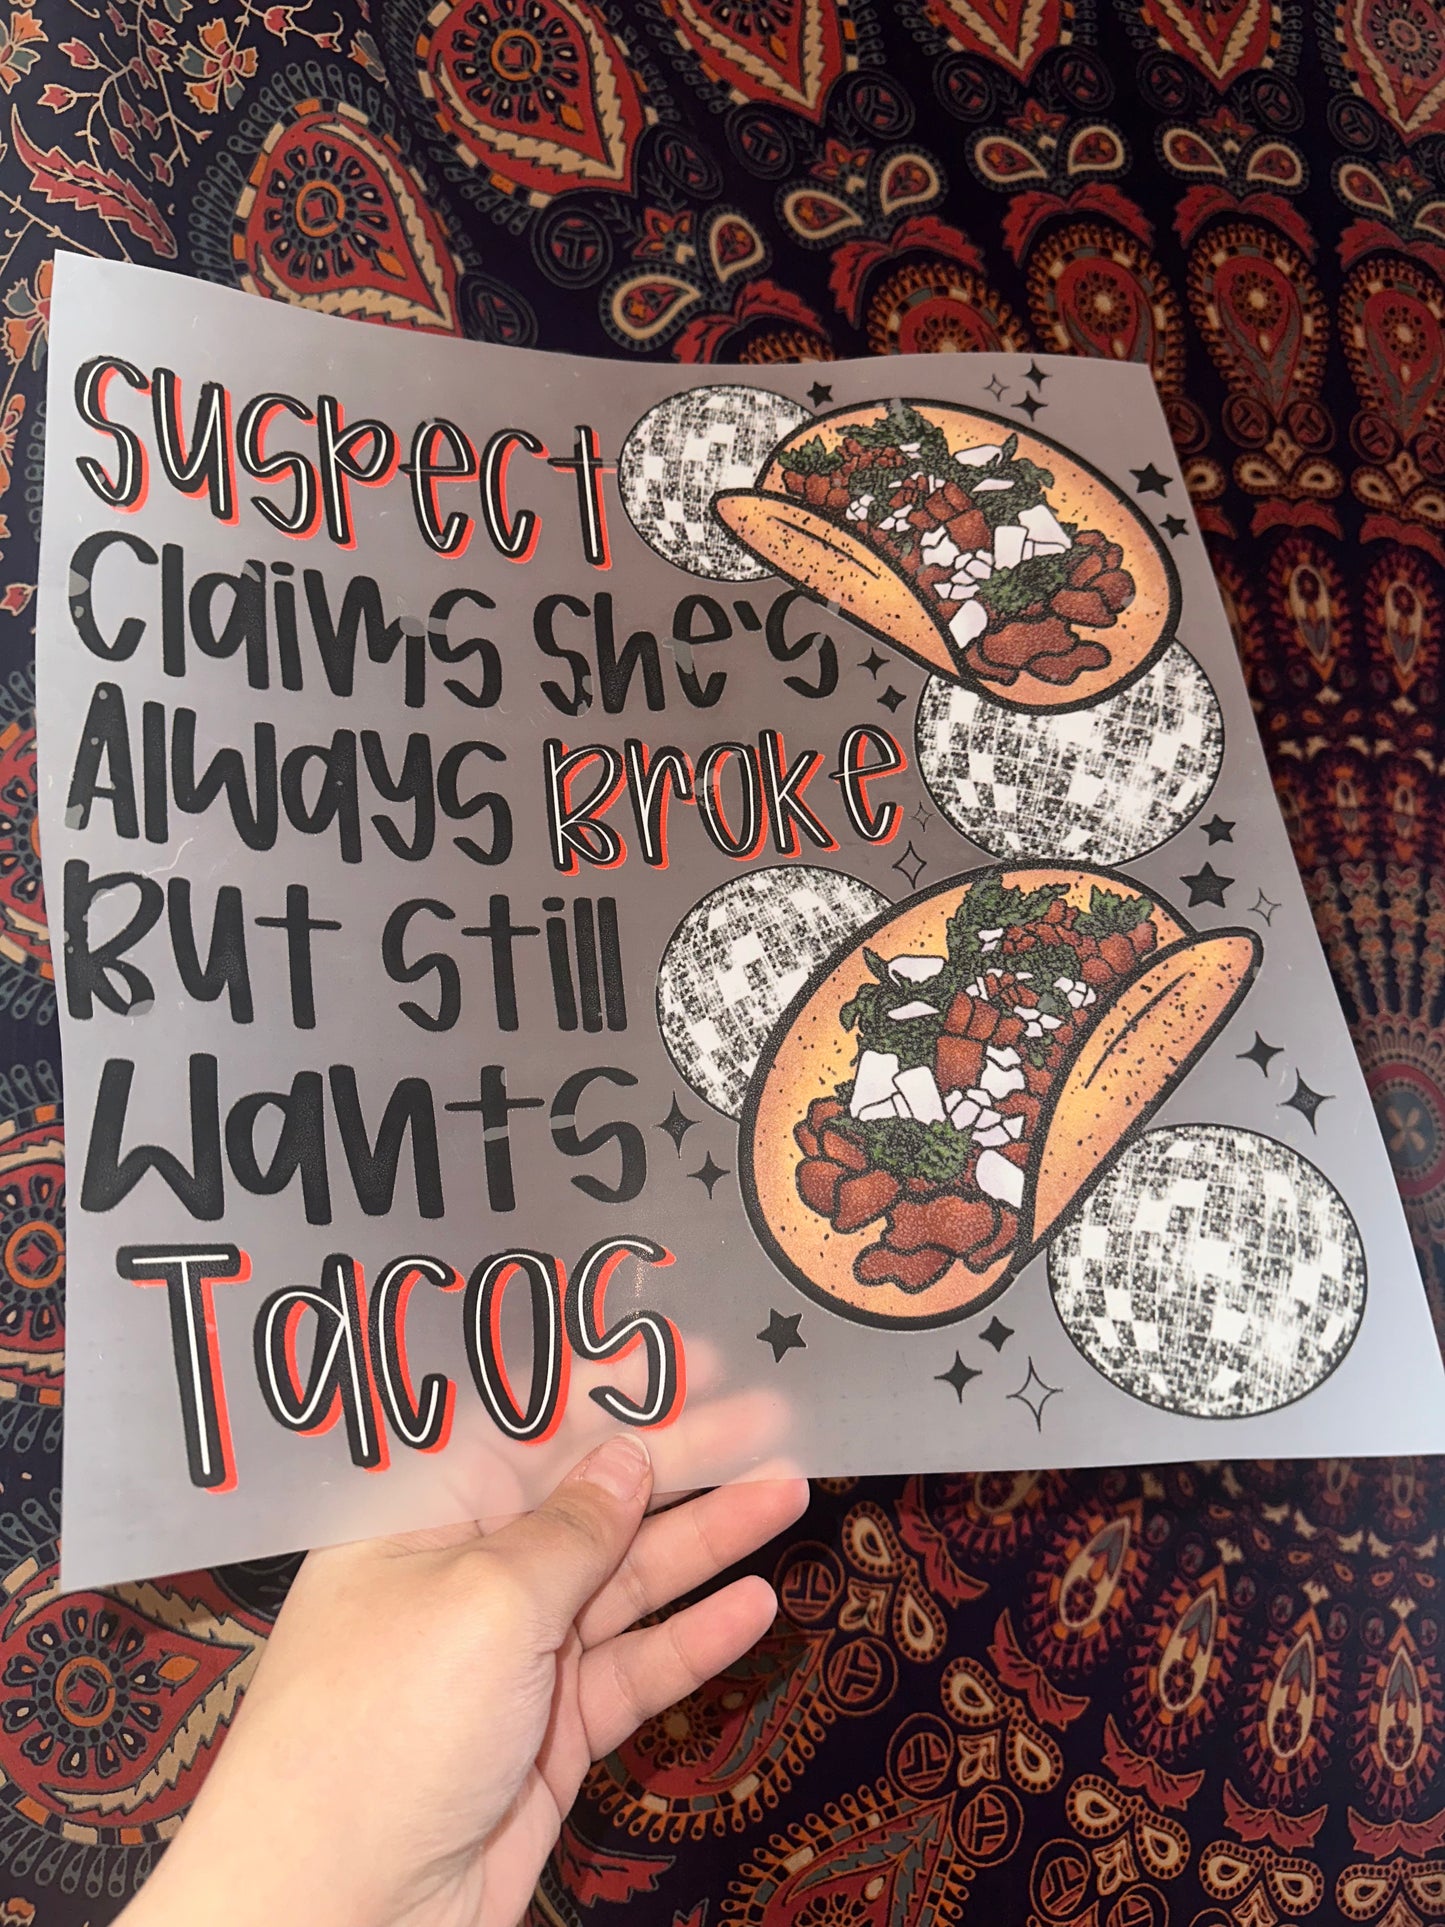 Suspect
Claims She's
Always Broke
But Still
Wants
Tacos